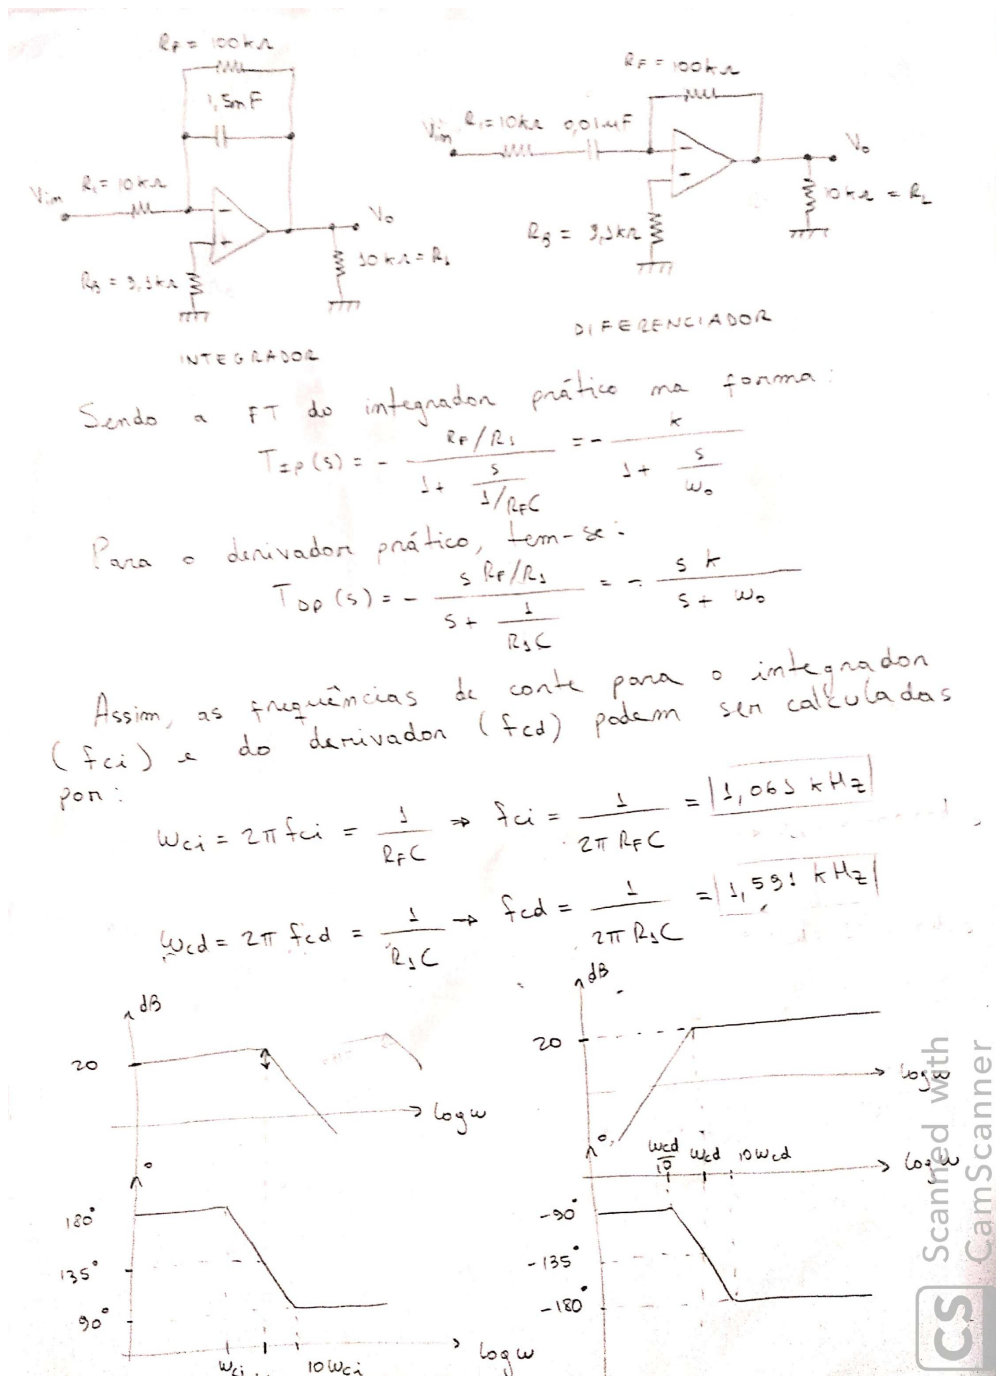 RF = 100kΩ
1,5nF
Vin R1= 10kΩ
Vo
RB = 9,1kΩ
10kΩ = RL
INTEGRADOR
RF = 100kΩ
Vin R1=10kΩ 0,01μF
Vo
RB = 9,1kΩ
10kΩ = RL
DIFERENCIADOR
Sendo a FT do integrador prático na forma:
TIP(s) = - (RF/R1) / (1 + s/(1/RFC)) = - k / (1 + s/ω0)
Para o derivador prático, tem-se:
TDP(s) = - (s RF/R1) / (s + 1/(R1C)) = - s k / (s + ω0)
Assim, as frequências de corte para o integrador
(fci) e do derivador (fcd) podem ser calculadas
por:
ωci = 2π fci = 1/(RFC) ⇒ fci = 1/(2π RFC) = 1,061 kHz
ωcd = 2π fcd = 1/(R1C) → fcd = 1/(2π R1C) = 1,591 kHz
dB
20
log ω
°
180°
135°
90°
ωci
10ωci
log ω
dB
20
log ω
°
ωcd/10 ωcd 10ωcd
log ω
-90°
-135°
-180°
CS Scanned with
CamScanner